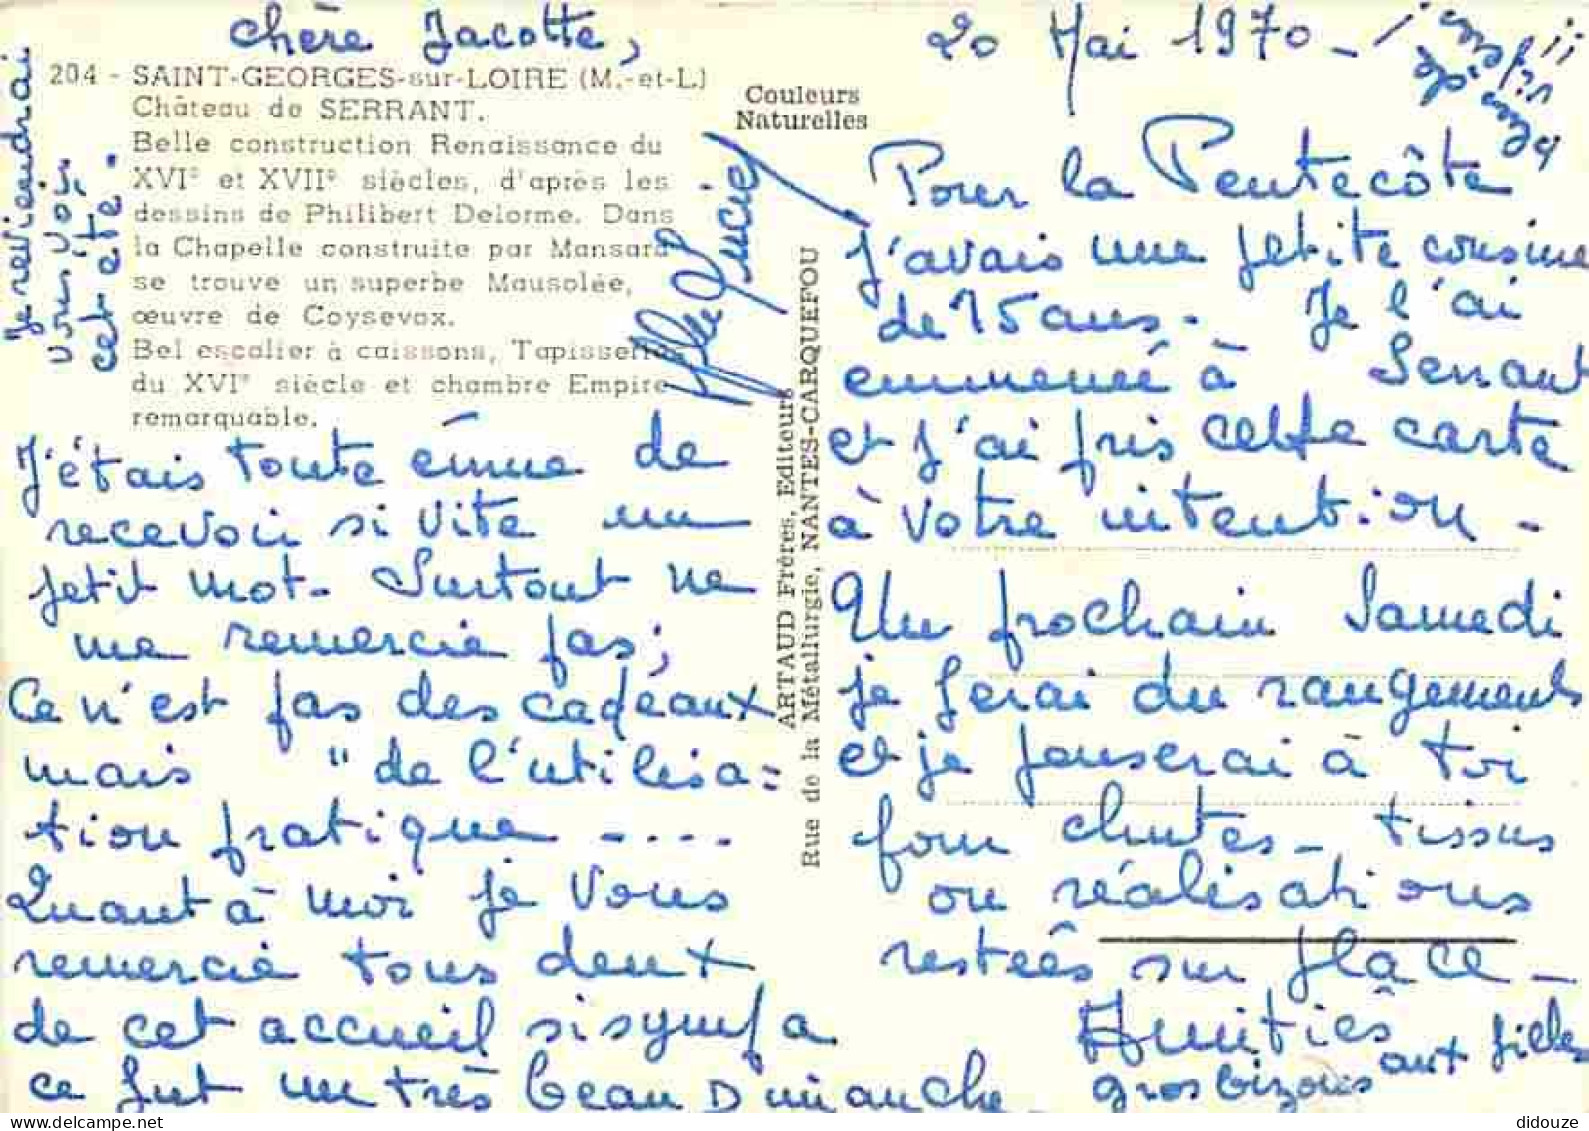 chère Jacotte,
20 Mai 1970 -
204 - SAINT-GEORGES-sur-LOIRE (M.-et-L.)
Château de SERRANT.
Belle construction Renaissance du
XVIe et XVIIe siècles, d'après les
dessins de Philibert Delorme. Dans
la Chapelle construite par Mansard
se trouve un superbe Mausolée,
œuvre de Coysevox.
Bel escalier à caissons, Tapisseries
du XVIe siècle et chambre Empire
remarquable.
Couleurs
Naturelles
Je reviendrai
vous voir
cet été.
J'étais toute émue de
recevoir si vite un
petit mot. Surtout ne
me remercie pas;
Ce n'est pas des cadeaux
mais "de l'utilisa=
tion pratique - ....
Quant à moi je vous
remercie tous deux
de cet accueil si sympa
ce fut un très beau Dimanche.
Lucie
ARTAUD Frères, Editeurs
Rue de la Métallurgie, NANTES-CARQUEFOU
Pour la Pentecôte
j'avais une petite cousine
de 15 ans. Je l'ai
emmenée à Serrant
et j'ai pris cette carte
à votre intention -
Un prochain Samedi
je ferai du rangements
et je penserai à toi
pour chutes - tissus
ou réalisations
restées sur place -
Amitiés
gros bizous aux filles
didouze